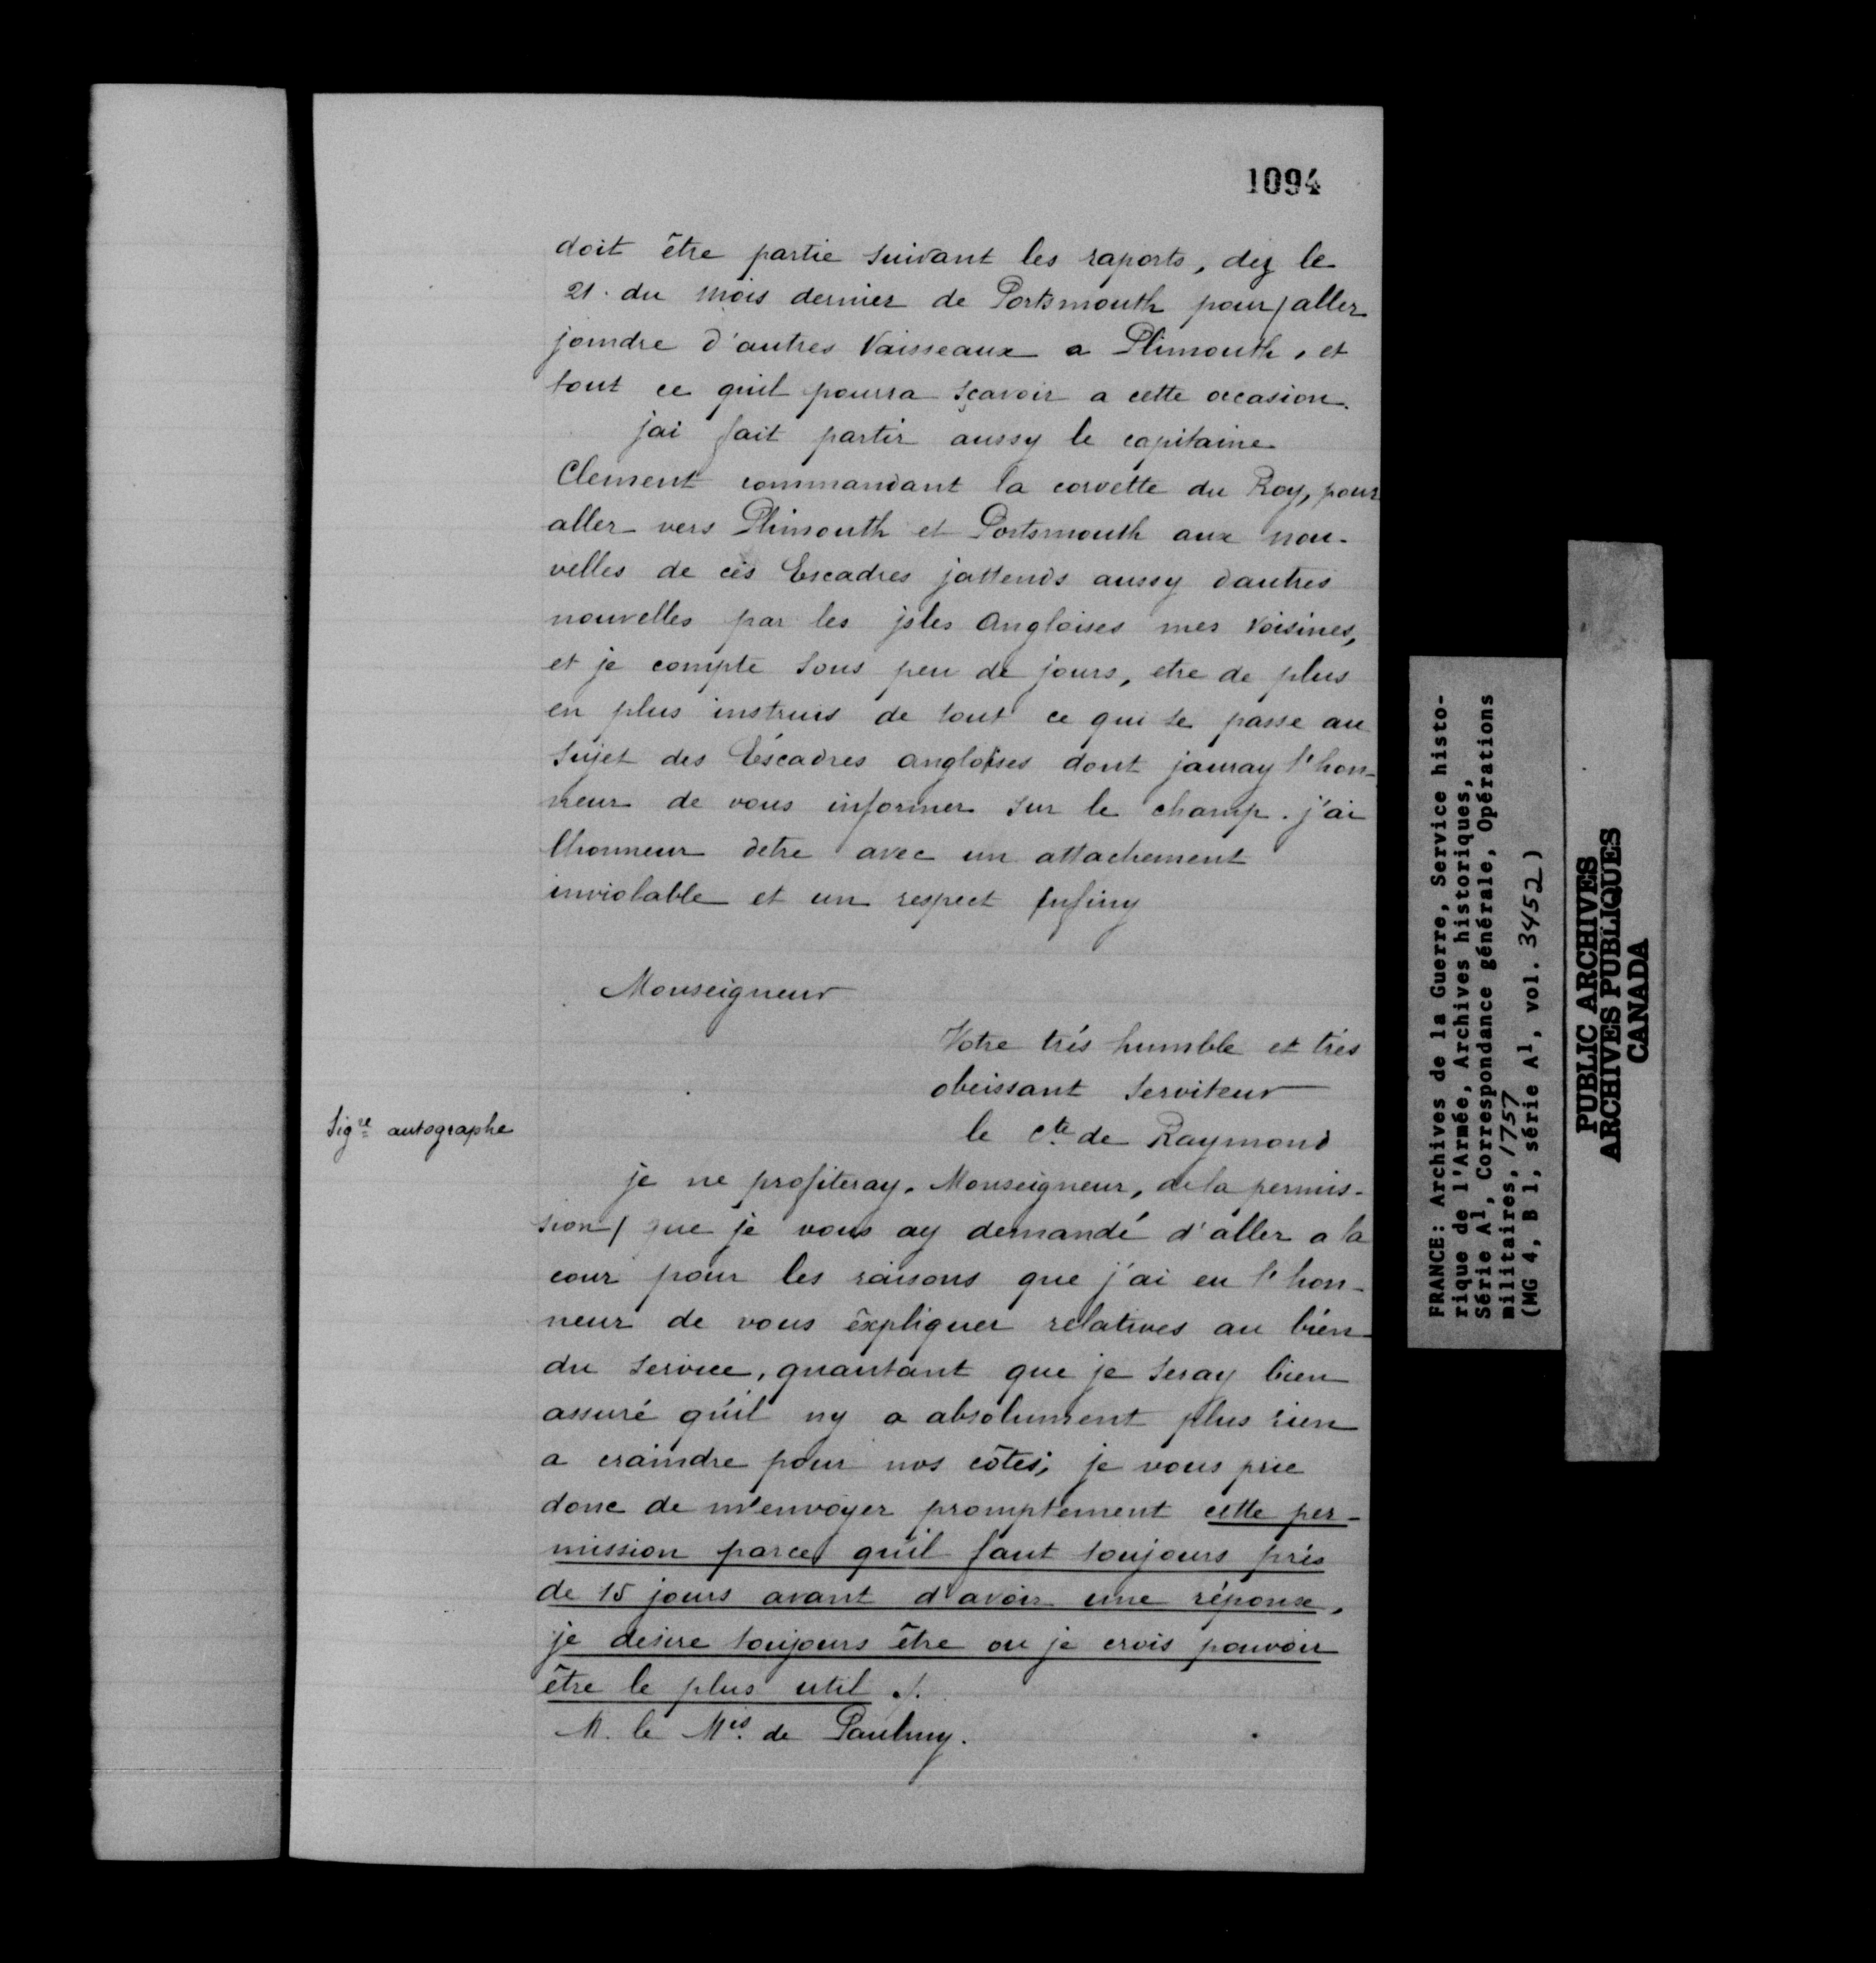 1094
doit être partie suivant les raports, dez le
21. du mois dernier de Portsmouth pour aller
joindre d'autres Vaisseaux a Plimouth, et
tout ce quil pourra sçavoir a cette occasion.
jai fait partir aussy le capitaine
Clement commandant la corvette du Roy, pour
aller vers Plimouth et Portsmouth aux nou-
velles de ces Escadres jattends aussy dautres
nouvelles par les jsles Angloises mes Voisines,
et je compte sous peu de jours, etre de plus
en plus instruis de tout ce qui se passe au
sujet des Escadres angloises dont jauray l'hon-
neur de vous informer sur le champ. j'ai
lhonneur detre avec un attachement
inviolable et un respect jnfiny
Monseigneur
Votre trés humble et trés
obeissant Serviteur
Sigre autographe
le Cte de Raymond
je ne profiteray, Monseigneur, de la permis-
sion que je vous ay demandé d'aller a la
cour pour les raisons que j'ai eu l'hon-
neur de vous expliquer relatives au bien
du Service, quautant que je seray bien
assuré qu'il ny a absolument plus rien
a craindre pour nos côtes; je vous prie
donc de m'envoyer promptement cette per-
mission parce qu'il faut toujours prés
de 15 jours avant d'avoir une réponse,
je desire toujours être ou je crois pouvoir
être le plus util ./.
M. le Mis de Paulmy.
FRANCE: Archives de la Guerre, Service histo-
rique de l'Armée, Archives historiques,
Série A1, Correspondance générale, Opérations
militaires, 1757
(MG 4, B 1, série A1, vol. 3452)
PUBLIC ARCHIVES
ARCHIVES PUBLIQUES
CANADA